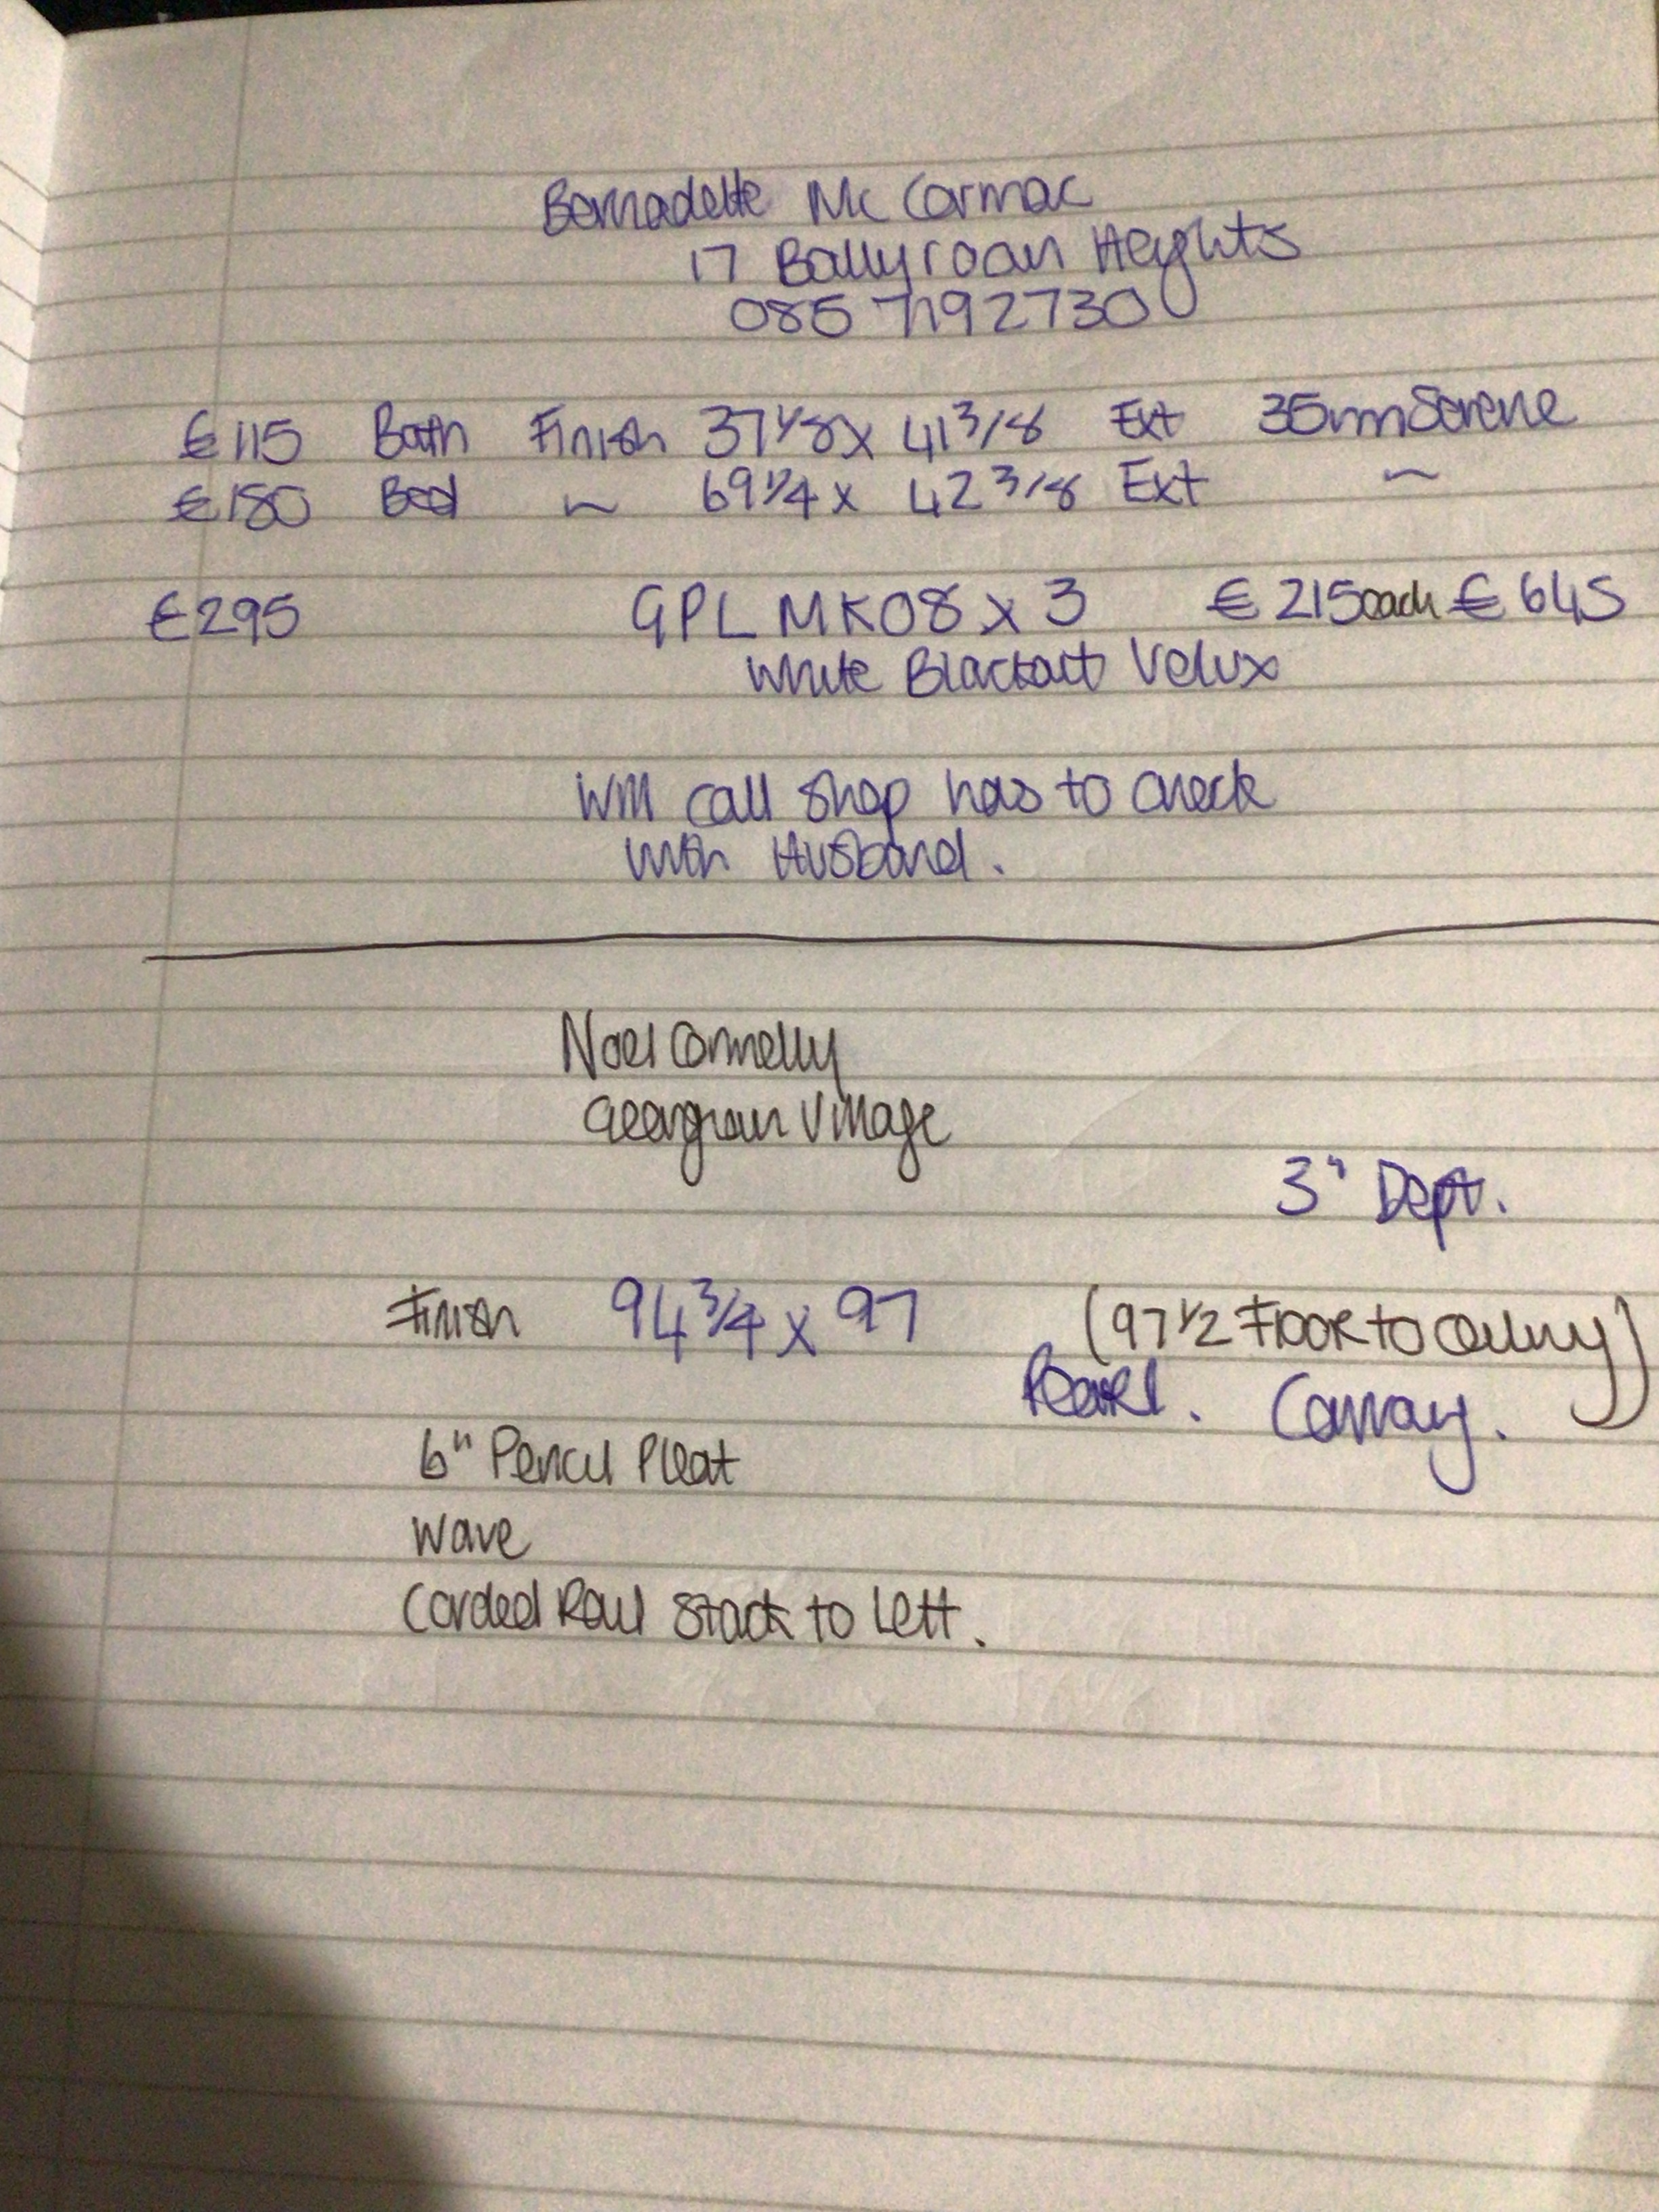 Bernadette Mc Cormac
17 Ballyroan Heights
085 7192730
€115 Bath Finish 37 1/8 x 41 3/8 Ext 35mm Serene
€180 Bed ~ 69 1/4 x 42 3/8 Ext ~
€295 GPL MK08 x 3 € 215 each € 645
White Blackout Velux
Will call shop has to check
with Husband.
Noel Connelly
Georgian Village
3" Dept.
Finish 94 3/4 x 97 (97 1/2 Floor to Ceiling)
Pearl. Conway.
6" Pencil Pleat
Wave
Corded Rail Stack to Left.